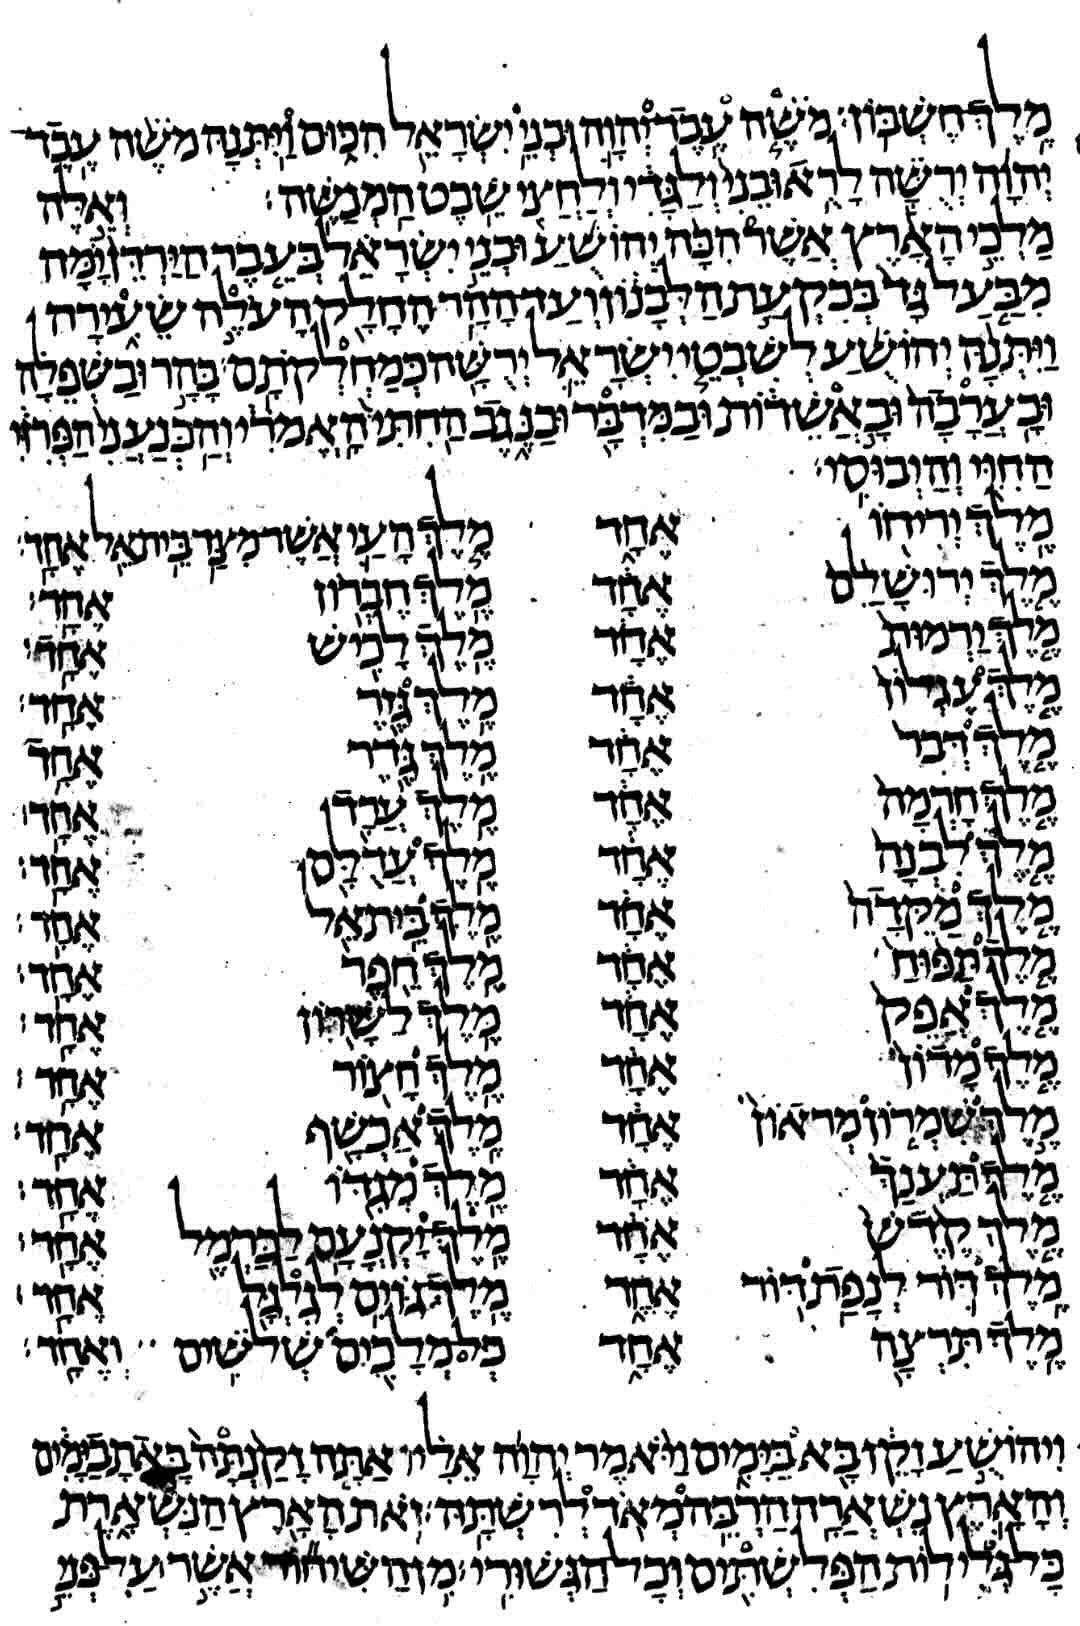 מלך חשבון׃ משה עבד יהוה ובני ישראל הכום ויתנה משה עבד
יהוה ירשה לראובני ולגדי ולחצי שבט המנשה׃ ואלה
מלכי הארץ אשר הכה יהושע ובני ישראל בעבר הירדן ימה
מבעל גד בבקעת הלבנון ועד ההר החלק העלה שעירה
ויתנה יהושע לשבטי ישראל ירשה כמחלקתם׃ בהר ובשפלה
ובערבה ובאשדות ובמדבר ובנגב החתי האמרי והכנעני הפרזי
החוי והיבוסי׃
מלך יריחו אחד מלך העי אשר מצד בית אל אחד׃
מלך ירושלם אחד מלך חברון אחד׃
מלך ירמות אחד מלך לכיש אחד׃
מלך עגלון אחד מלך גזר אחד׃
מלך דבר אחד מלך גדר אחד
מלך חרמה אחד מלך ערד אחד׃
מלך לבנה אחד מלך עדלם אחד׃
מלך מקדה אחד מלך בית אל אחד׃
מלך תפוח אחד מלך חפר אחד׃
מלך אפק אחד מלך לשרון אחד׃
מלך מדון אחד מלך חצור אחד׃
מלך שמרון מראון אחד מלך אכשף אחד׃
מלך תענך אחד מלך מגדו אחד׃
מלך קדש אחד מלך יקנעם לכרמל אחד׃
מלך דור לנפת דור אחד מלך גוים לגלגל אחד׃
מלך תרצה אחד כל מלכים שלשים ואחד׃
ויהושע זקן בא בימים ויאמר יהוה אליו אתה זקנתה באת בימים
והארץ נשארה הרבה מאד לרשתה׃ זאת הארץ הנשארת
כל גלילות הפלשתים וכל הגשורי׃ מן השיחור אשר על פני